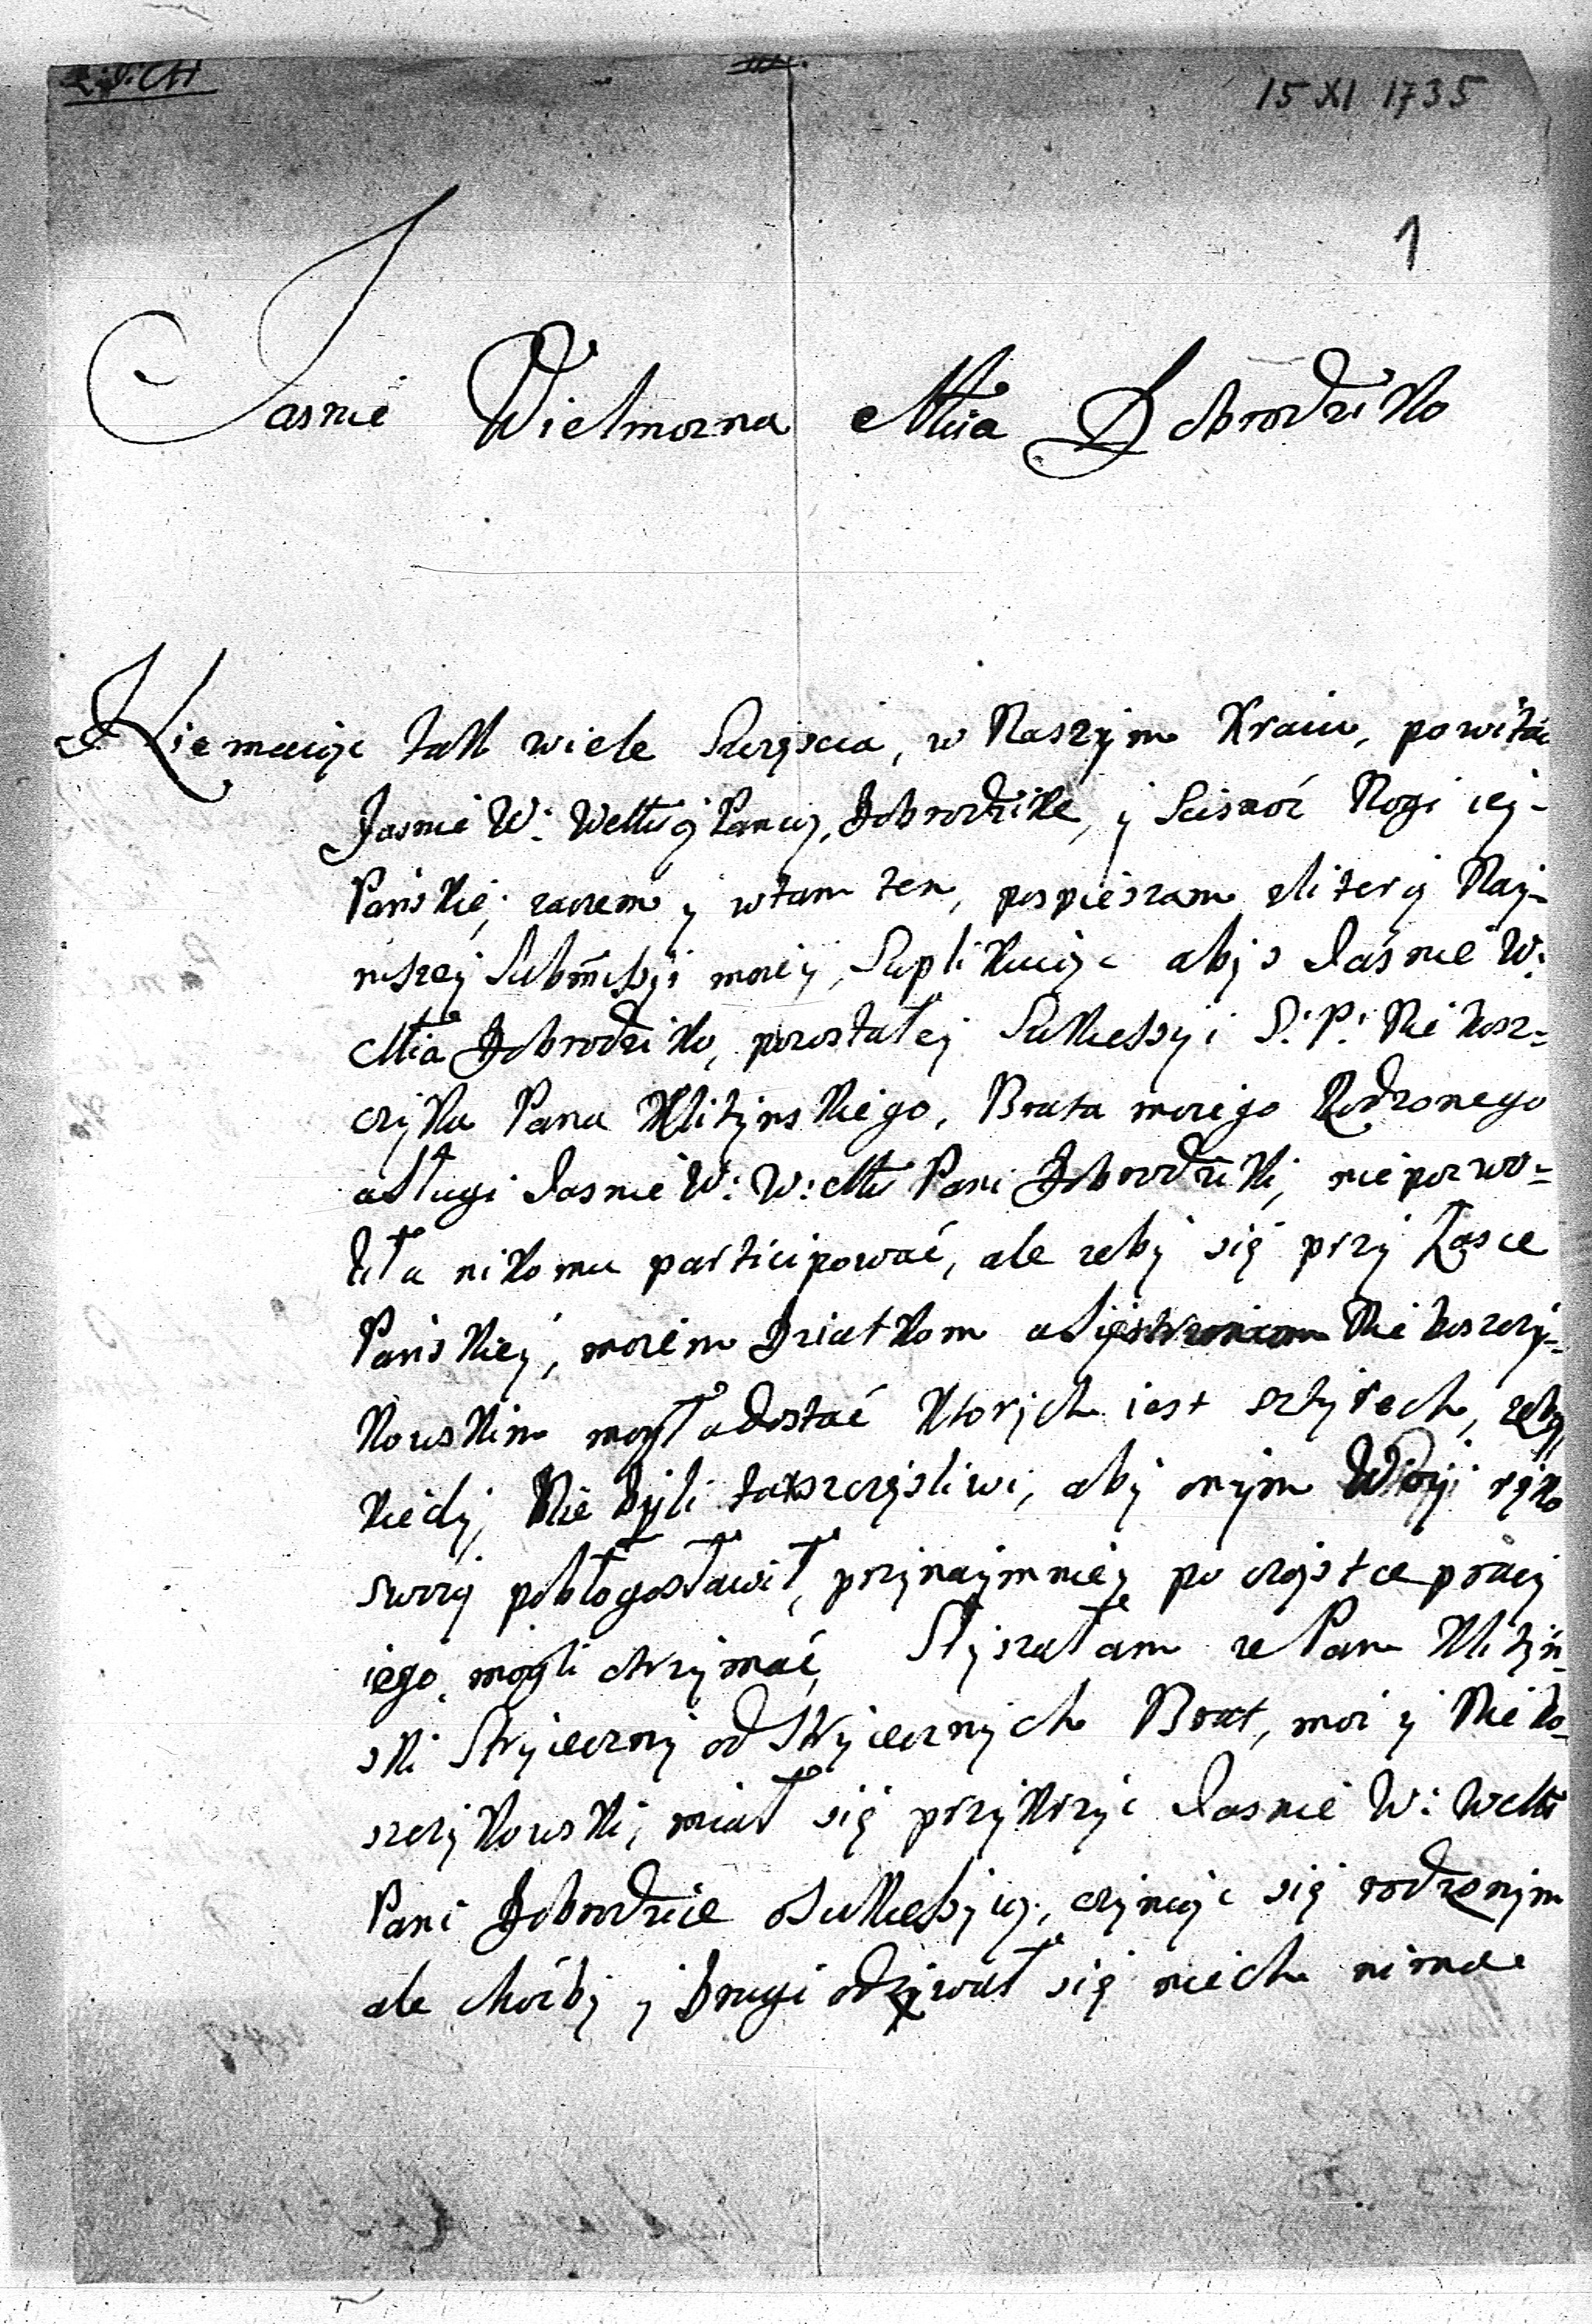 15 XI 1735
1
Jasnie Wielmozna Mcia Dobrodziko
Niemaiąc tak wiele Szczęscia, w Naszym Kraiu, powitac
Jasnie W: WMci Panią Dobrodzikę, y Scisnąć Nogi iey-
Pańskie, zaczem y wtam ten, pospieszam zliterą Nay-
nizszey Submissyi moiey, Suplikuiąc abys Jaśnie W:
Mcia Dobrodziko, pozostałey Sukcessyi S: P: Niekosz-
czyka Pana Klitynskiego, Brata moiego Rodzonego
asługi Jasnie W: W: Mci Pani Dobrodziki, niepozwo-
liła nikomu participować, ale zeby się przy Łasce
Pańskiey, moiem Dziatkom Niekoszczy-
kowskim mogła dostać ktorych iest sztyrech, zeby
kiedy Nie byli takszczęsliwi, aby onym Wiozyi ręko
swoią pobłogosławił, przynaymniey po cząstce pracy
iego mogli otrzymać, Słyszałam ze Pan Klityń-
ski Stryieczny od Stryiecznych Brat, moi y Nieko-
szczykowski, miał się przykrzyc Jasnie W: WMci
Pani Dobrodzice oSukcessyią, czyniąc się rodzonym
ale choćby y Drugi odzywał się niech nima